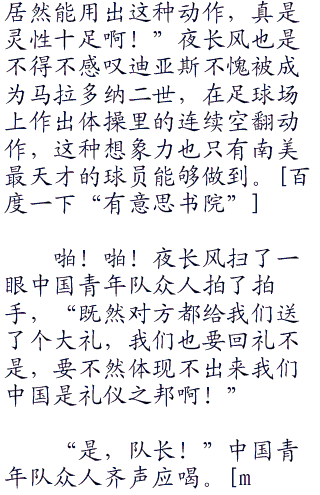 居然能用出这种动作，真是
灵性十足啊！”夜长风也是
不得不感叹迪亚斯不愧被成
为马拉多纳二世，在足球场
上作出体操里的连续空翻动
作，这种想象力也只有南美
最天才的球员能够做到。[百
度一下“有意思书院”]
啪！啪！夜长风扫了一
眼中国青年队众人拍了拍
手，“既然对方都给我们送
了个大礼，我们也要回礼不
是，要不然体现不出来我们
中国是礼仪之邦啊！”
“是，队长！”中国青
年队众人齐声应喝。[m